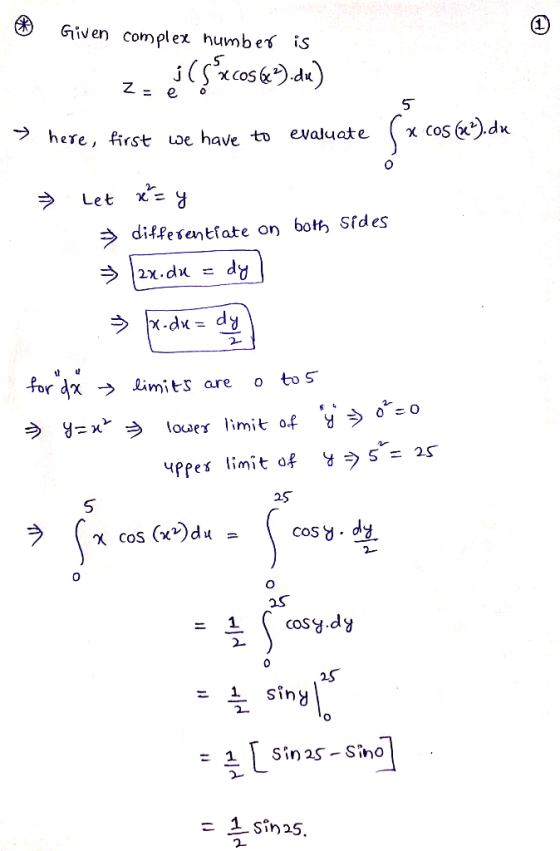 ⊛ Given complex number is ①
z = e^{j(∫₀⁵ x cos(x²).dx)}
→ here, first we have to evaluate ∫₀⁵ x cos(x²).dx
⇒ Let x² = y
⇒ differentiate on both sides
⇒ 2x.dx = dy
⇒ x.dx = dy/2
for "dx" → limits are 0 to 5
⇒ y=x² ⇒ lower limit of "y" ⇒ 0² = 0
upper limit of y ⇒ 5² = 25
⇒ ∫₀⁵ x cos(x²)dx = ∫₀²⁵ cosy. dy/2
= 1/2 ∫₀²⁵ cosy.dy
= 1/2 siny|₀²⁵
= 1/2 [sin25 - sin0]
= 1/2 sin25.